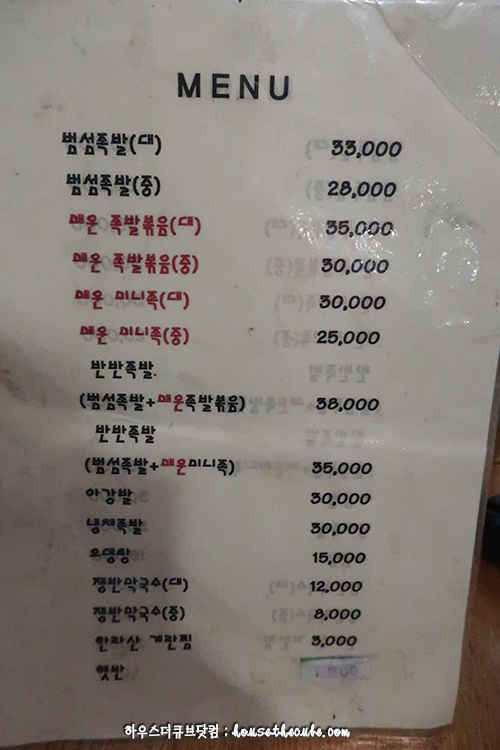 MENU
범섬족발(대) 33,000
범섬족발(중) 28,000
매운 족발볶음(대) 35,000
매운 족발볶음(중) 30,000
매운 미니족(대) 30,000
매운 미니족(중) 25,000
반반족발
(범섬족발+매운족발볶음) 38,000
반반족발
(범섬족발+매운미니족) 35,000
아강발 30,000
냉채족발 30,000
오뎅탕 15,000
쟁반막국수(대) 12,000
쟁반막국수(중) 8,000
한라산 계란찜 3,000
햇반
하우스더큐브닷컴 : housethecube.com